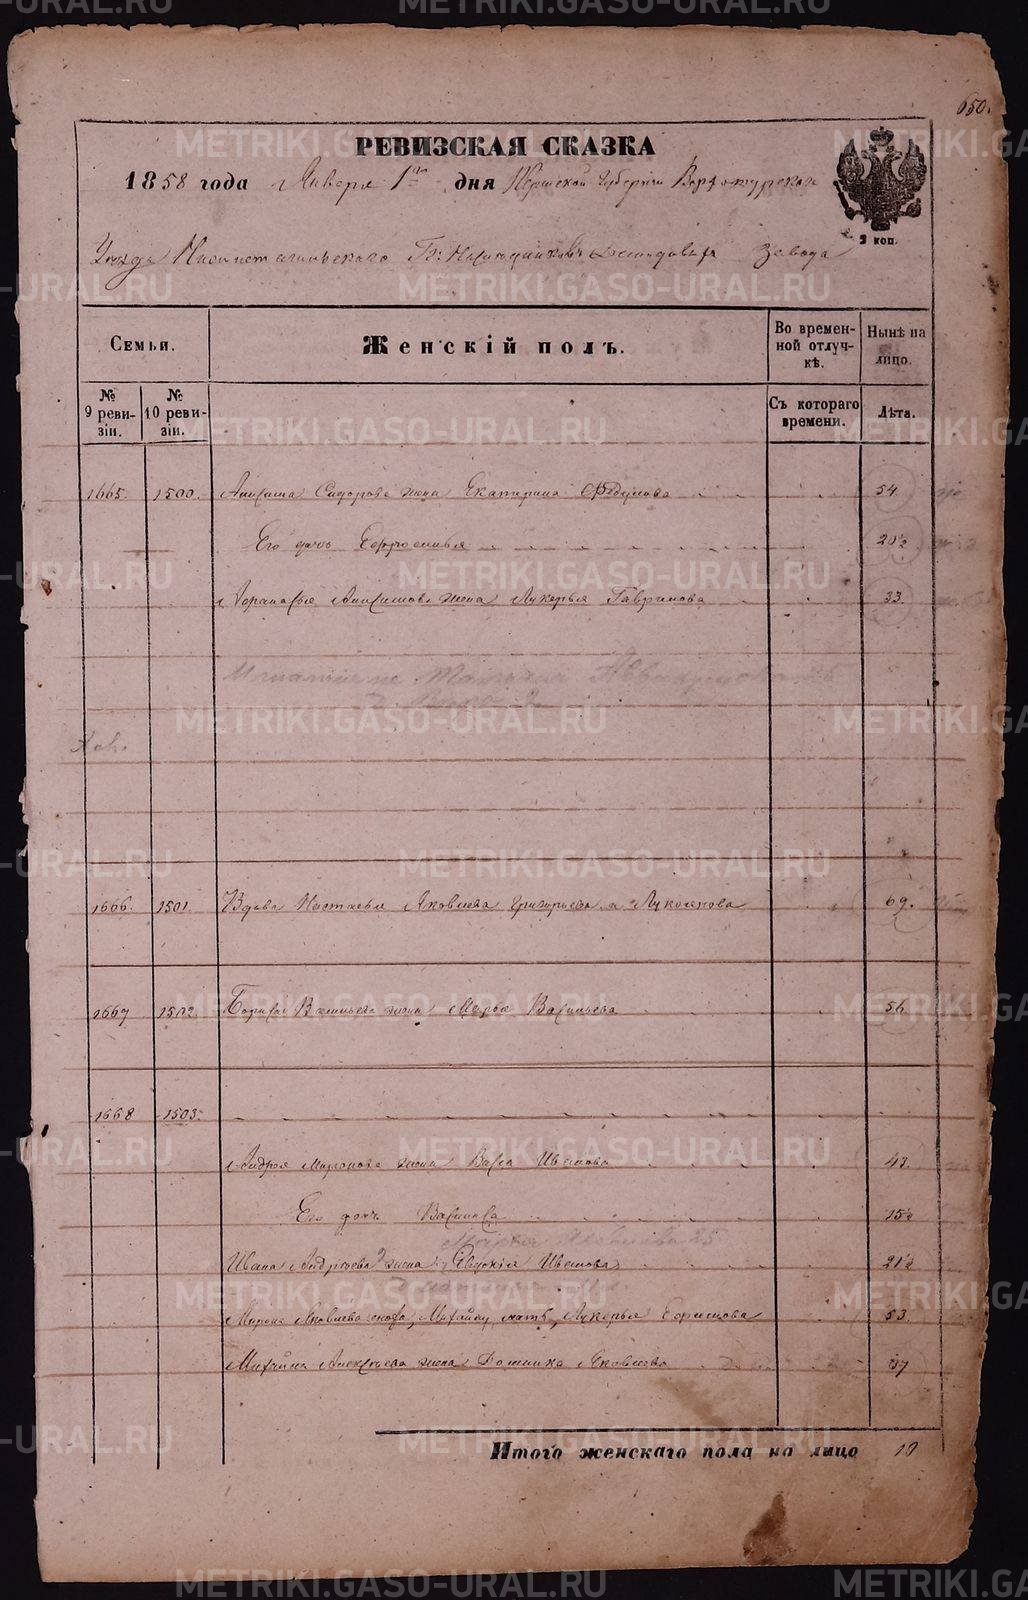 650.
РЕВИЗСКАЯ СКАЗКА
1858 года Января 1го дня Пермской Губернiи Верхотурскаго
Уѣзда Нижнетагильскаго Гг. Наслѣдниковъ Демидовыхъ Завода
2 коп.
Семьи.
Женскій полъ.
Во временной отлучкѣ.
Нынѣ на лицо.
№ 9 ревизіи.
№ 10 ревизіи.
Съ котораго времени.
Лѣта.
1665. 1500. Анисима Сидорова жена Екатерина Федулова 54.
Его дочь Ефросинья 20½
Афанасья Анисимова жена Лукерья Гаврилова 33.
1666. 1501. Вдова Настасья Яковлева Григорьева 69.
1667 1502. Бориса Васильева жена Марья Васильева 56.
1668 1503.
Андрея Миронова жена Васса Иванова 43.
Его дочь Василиса 15½
Ивана Андреева жена Евдокія Иванова 21½
Мирона Яковлева сноха, Михайлу мать, Лукерья 53.
Михайла Алексѣева жена Домника Яковлева 37
Итого женскаго пола на лицо 10
METRIKI.GASO-URAL.RU